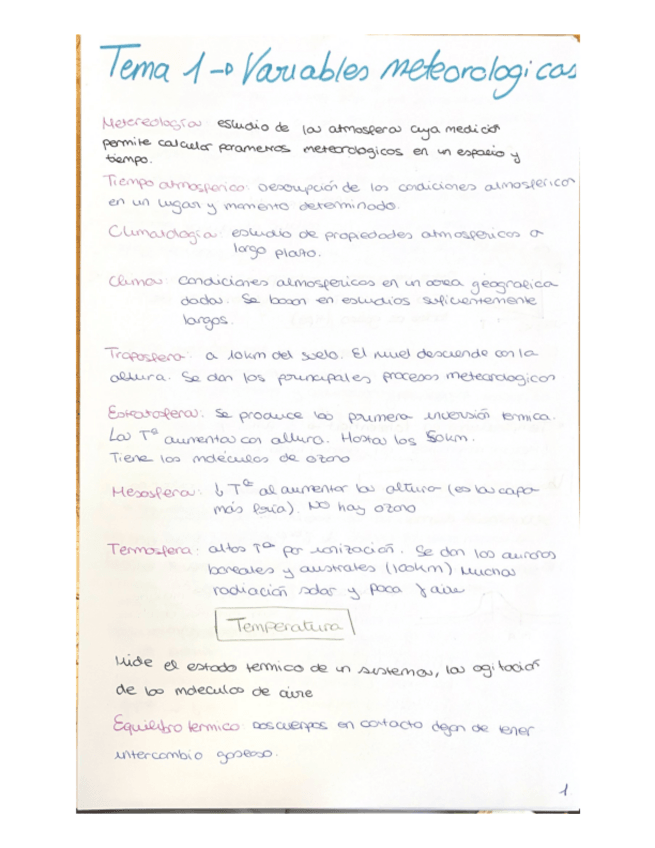 Tema 1 → Variables meteorologicas
Metereología: estudio de la atmosfera cuya medición
permite calcular parametros meteorologicos en un espacio y
tiempo.
Tiempo atmosferico: Descripción de las condiciones atmosfericas
en un lugar y momento determinado.
Climatología: estudio de propiedades atmosfericas a
largo plazo.
Clima: condiciones atmosfericas en un area geografica
dada. Se basan en estudios suficientemente
largos.
Troposfera: a 10km del suelo. El nivel desciende con la
altura. Se dan los principales procesos meteorologicos
Estratosfera: Se produce la primera inversión termica.
La Tª aumenta con altura. Hasta los 50km.
Tiene las moleculas de ozono
Mesosfera: ↓ Tª al aumentar la altura (es la capa
más fria). No hay ozono
Termosfera: altas Tª por ionización. Se dan las auroras
boreales y australes (100km) Mucha
radiación solar y poca aire
Temperatura
Mide el estado termico de un sistema, la agitación
de las moleculas de aire
Equilibro termico: Dos cuerpos en contacto dejan de tener
intercambio gaseoso.
1